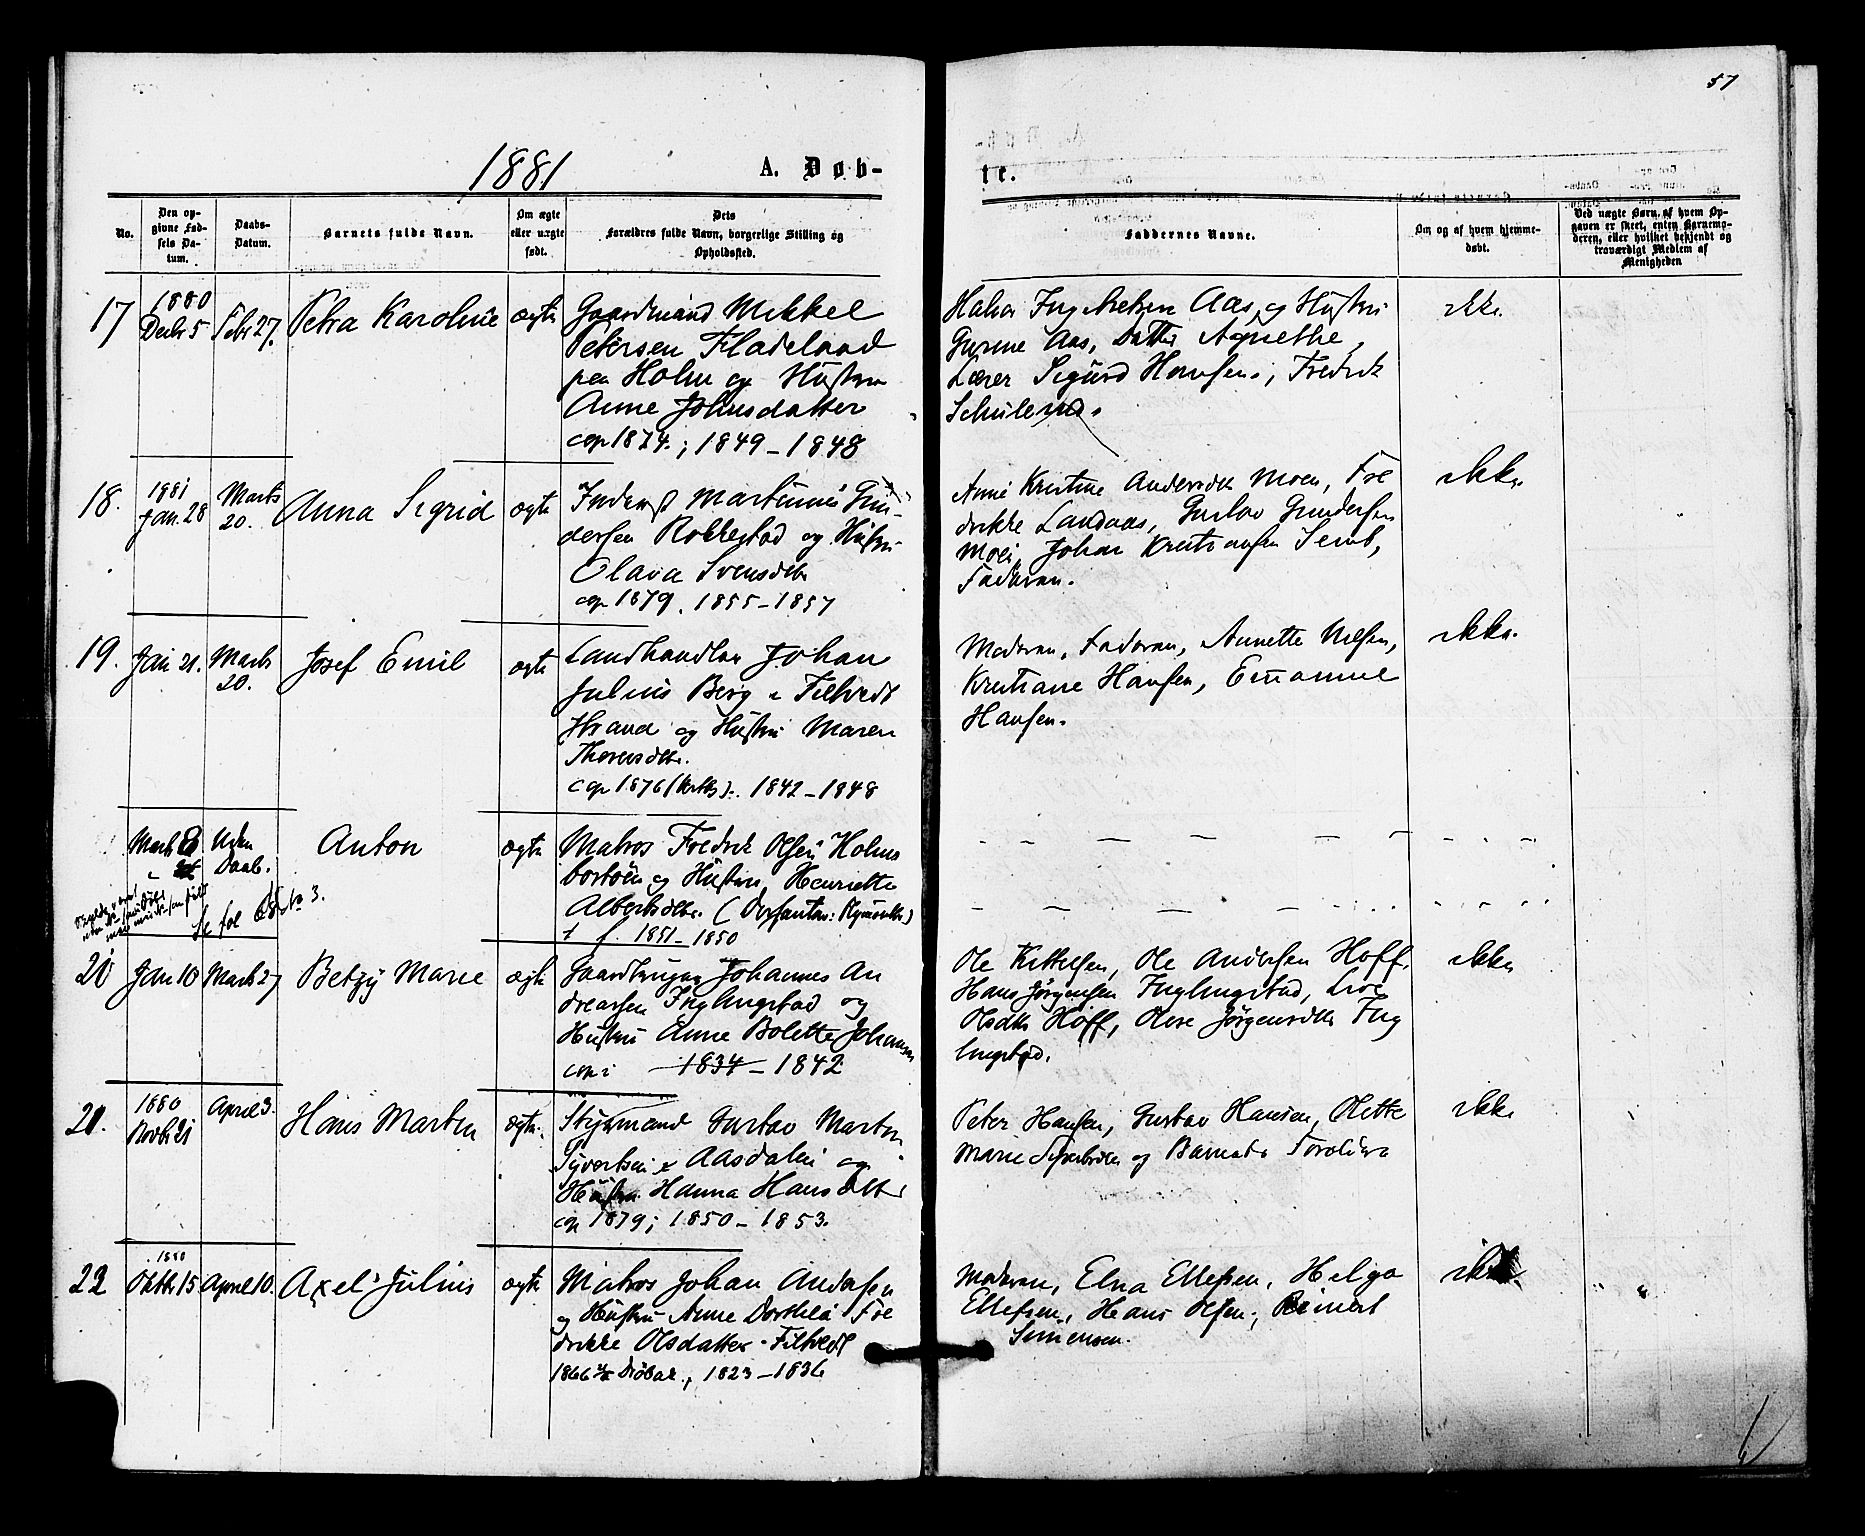 57
1881
A. Døb-
te.
No.
Den op-
givne Fød-
sels Da-
tum.
Daabs-
Datum.
Barnets fulde Navn.
Om ægte
eller uægte
født.
Dets
Forældres fulde Navn, borgerlige Stilling og
Opholdssted.
Faddernes Navne.
Om og af hvem hjemme-
døbt.
Ved uægte Børn, af hvem Op-
gaven er skeet, enten Barnemo-
deren, eller hvilket bekjendt og
troværdigt Medlem af
Menigheden
17
1880
Decbr 5
Febr 27.
Petra Karoline
ægte
Gaardmand Mikkel
Petersen Fladeland
paa Holm og Hustru
Anne Johnsdatter
cop 1874.; 1849-1848
Aas og Hustru
Gurine Aas, Datter Agnethe,
Lærer Sigurd Hansen, Fredrik
ikke.
18.
1881
Jan. 28
Marts
20.
Anna Sigrid
ægte
Martinus Gun-
dersen Rokkestad og Hustru
Olava Svensdtr
cop 1879. 1855-1857
Anne Kristine Andersdtr Moen, Fre
drikke Landaas, Gustav Gundersen
Moen, Johan Kristiansen Semb,
Faderen.
ikke.
19.
Jan 21.
Marts
20.
Josef Emil
ægte
Landhandler Johan
Julius Berg i Filtvedt
Strand og Hustru Maren
Thorersdtr.
cop 1876 1842-1848
Moderen, Faderen, Annette Nilsen,
Kristiane Hansen, Emanuel
Hansen.
ikke.
Marts 8
Uden
Daab.
Anton
ægte
Matros Fredrik Olsen Holms
bostøen og Hustru Henriette
Albertsdtr.
f. 1851-1850
Se fol
20
Jan 10
Marts 27
Betzy Marie
ægte
Gaardbruger Johannes An
dreassen Fuglingstad og
Hustru Anne Bolette Johannes
cop i 1834-1842
Ole Kittelsen, Ole Andersen Hoff,
Hans Jørgensen Fuglingstad, Live
Olsdtr Hoff, Jørgensdtr Fug
lingstad.
ikke
21.
1880
Novbr 21
April 3.
Hans Martin
ægte.
Styrmand Gustav Martin
Syvertsen i Aasdalen og
Hustru Hanna Hansdtr
cop 1879; 1850-1853.
Peter Hansen, Gustav Hansen, Olette
Marie Syvertsdtr og Barnets Forældre
ikke
22
1880
Oktbr 15
April 10.
Axel Julius
ægte
Matros Johan Andersen
og Hustru Anne Dorthea Fre
drikke Olsdatter Filtvedt
1866 i Drøbak, 1823-1836
Moderen, Elna Ellefsen, Helga
Ellefsen, Hans Olsen, Reinert
Simensen.
ikke.